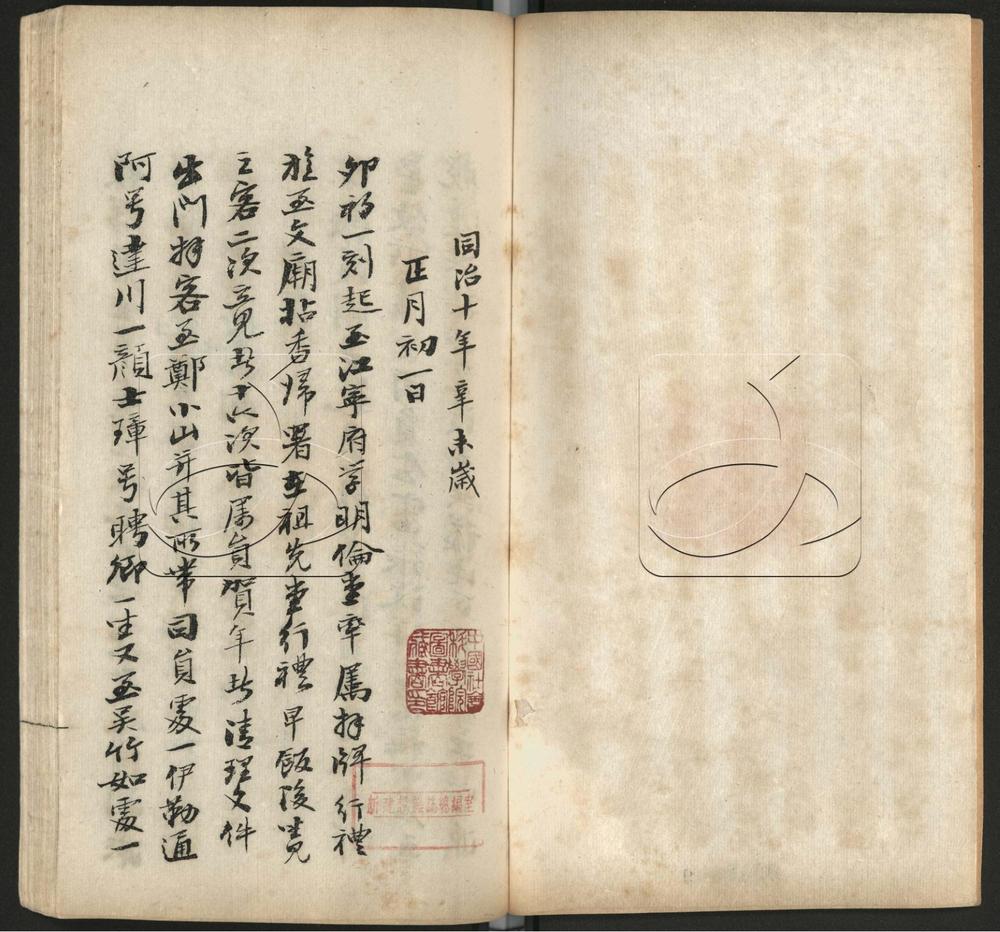 同治十年辛未歲
正月初一日
卯初一刻起至江寧府学明倫堂率属拜牌行禮
旋至文廟拈香歸署至祖先堂行禮早飯後坐見
之客二次立見者十六次皆属員賀年者清理文件
出門拜客至鄭小山并其所带司員處一伊勒通
阿号達川一顔士璋号聘卿一坐又至吴竹如處一
中國社會科學院圖書館藏書